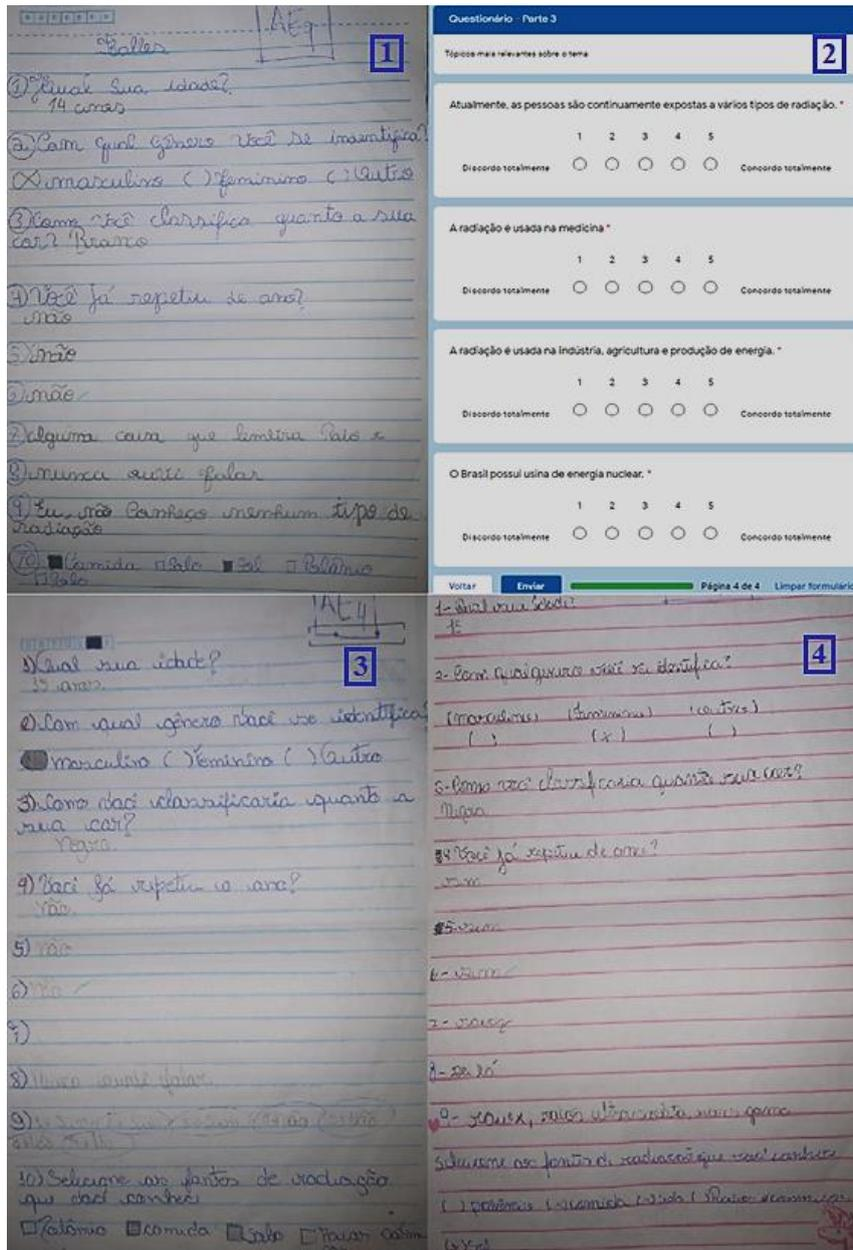 AE9
1
① Qual Sua idade?
14 anos
② Com qual gênero Você se
(X) masculino ( ) feminino ( ) Outro
③ Como você classifica quanto a sua
cor? Branco
4) Você já repetiu de ano?
não
5) não
6) não
7) alguma coisa que lembra Raio x
8) nunca ouvi falar
9) Eu não Conheço nenhum tipo de
radiação
10) ■ Comida □ Solo ■ Sol □ Polônio
Questionário - Parte 3
Tópicos mais relevantes sobre o tema
2
Atualmente, as pessoas são continuamente expostas a vários tipos de radiação. *
1 2 3 4 5
Discordo totalmente Concordo totalmente
A radiação é usada na medicina *
1 2 3 4 5
Discordo totalmente Concordo totalmente
A radiação é usada na indústria, agricultura e produção de energia. *
1 2 3 4 5
Discordo totalmente Concordo totalmente
O Brasil possui usina de energia nuclear. *
1 2 3 4 5
Discordo totalmente Concordo totalmente
Voltar Enviar Página 4 de 4 Limpar formulário
AE4
3
1) Qual sua idade?
15 anos.
2) Com qual gênero Você se identifica
masculino ( ) Feminino ( ) Outro
3) Como você classificaria quanto a
sua cor?
Negra.
4) Você já repetiu o ano?
não.
5) não
6) não
7)
8) Nunca falar
9)
10) Selecione as fontes de radiação
que você conhece
□ Polônio comida Solo
4
1- Qual sua idade?
2- Com qual gênero você se identifica?
(masculino) (feminino) (outros)
( ) (x) ( )
Como você classificaria quanto sua cor?
Negra
Você já repetiu de ano?
sim
5- sim
6- sim
7- raio x
8-
9- raio x, raios ultravioleta, raios gama
Selecione as fontes de radiação que você conhece
( ) polônio comida